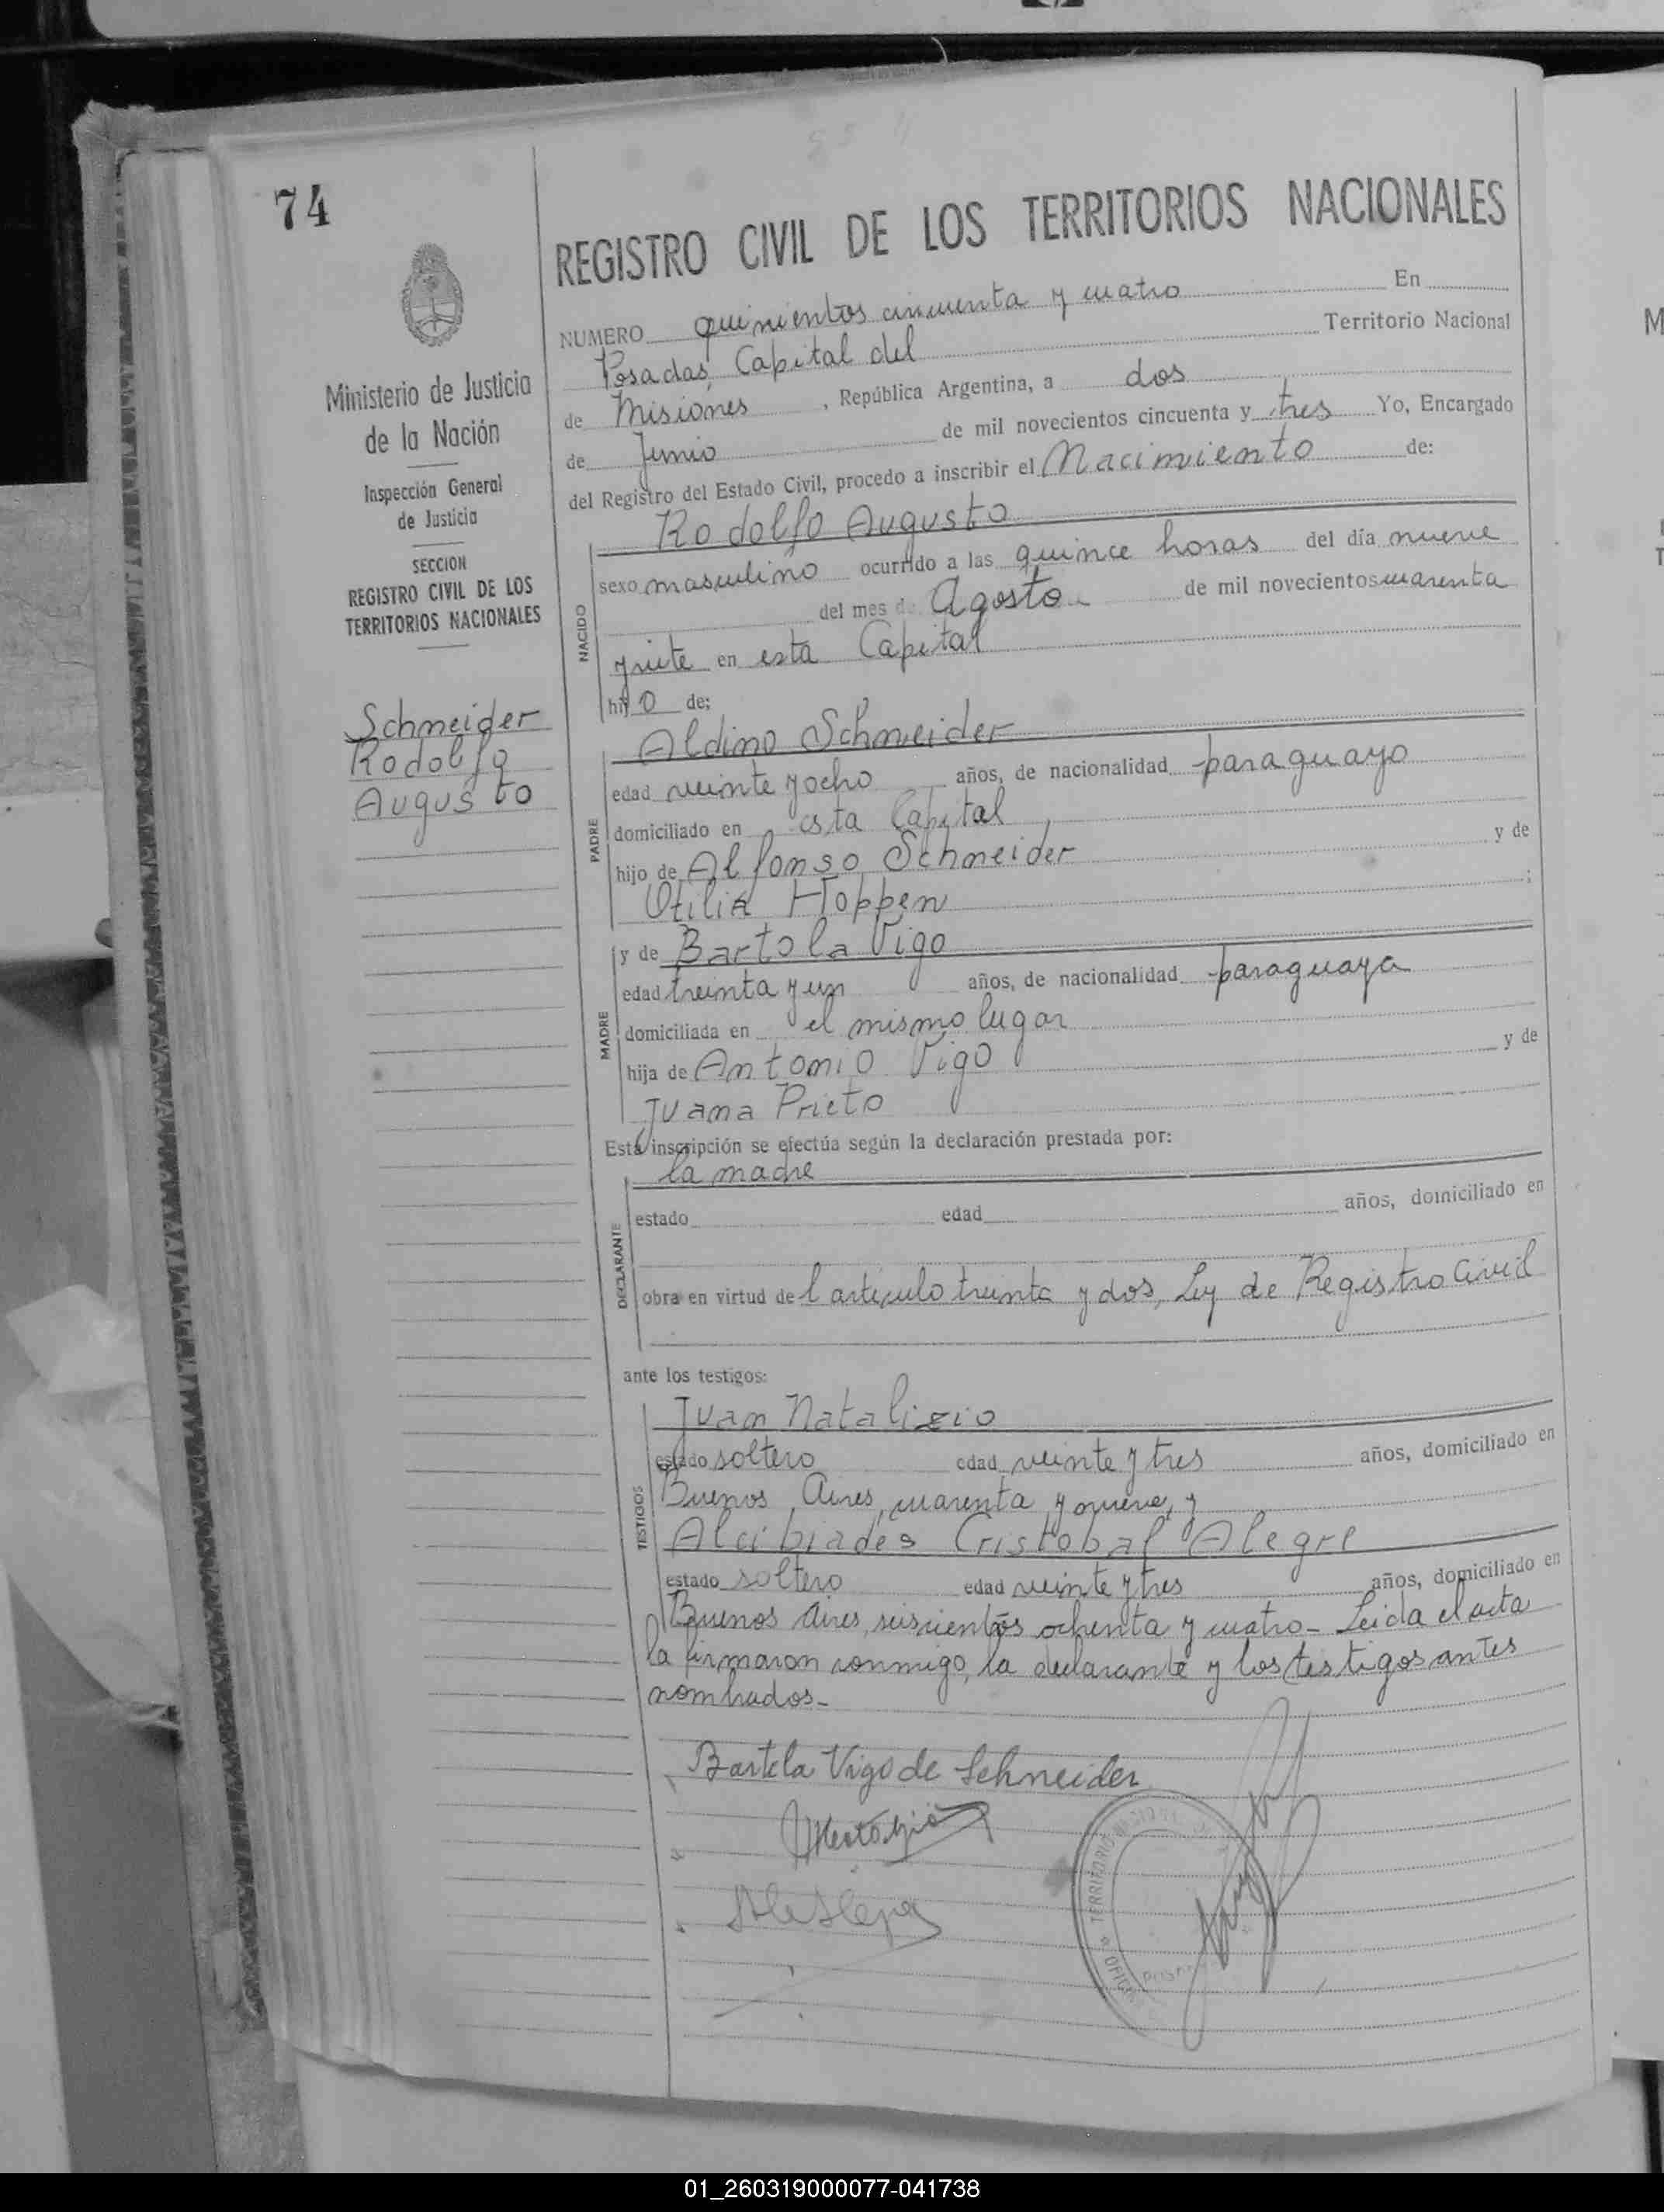 74
Ministerio de Justicia
de la Nación
Inspección General
de Justicia
SECCION
REGISTRO CIVIL DE LOS
TERRITORIOS NACIONALES
Schneider
Rodolfo
Augusto
REGISTRO CIVIL DE LOS TERRITORIOS NACIONALES
NUMERO quinientos cincuenta y cuatro En
Posadas, Capital del Territorio Nacional
de Misiones, República Argentina, a dos
de Junio de mil novecientos cincuenta y tres Yo, Encargado
del Registro del Estado Civil, procedo a inscribir el Nacimiento de:
NACIDO
Rodolfo Augusto
sexo masculino ocurrido a las quince horas del día nueve
del mes de Agosto de mil novecientos cuarenta
y siete en esta Capital
hijo de:
PADRE
Aldino Schneider
edad veinte y ocho años, de nacionalidad paraguayo
domiciliado en esta Capital,
hijo de Alfonso Schneider y de
Otilia Hoppen;
MADRE
y de Bartola Vigo
edad treinta y un años, de nacionalidad paraguaya
domiciliada en el mismo lugar
hija de Antonio Vigo y de
Juana Prieto
Esta inscripción se efectúa según la declaración prestada por:
DECLARANTE
la madre
estado edad años, domiciliado en
obra en virtud del articulo treinta y dos, Ley de Registro Civil
ante los testigos:
TESTIGOS
Juan Natalizio
estado soltero edad veinte y tres años, domiciliado en
Buenos Aires, cuarenta y nueve, y
Alcibiades Cristobal Alegre
estado soltero edad veinte y tres años, domiciliado en
Buenos Aires, seiscientos ochenta y cuatro- Leida el acta
la firmaron conmigo, la declarante y los testigos antes
nombrados-
Bartola Vigo de Schneider
TERRITORIO NACIONAL
01_260319000077-041738